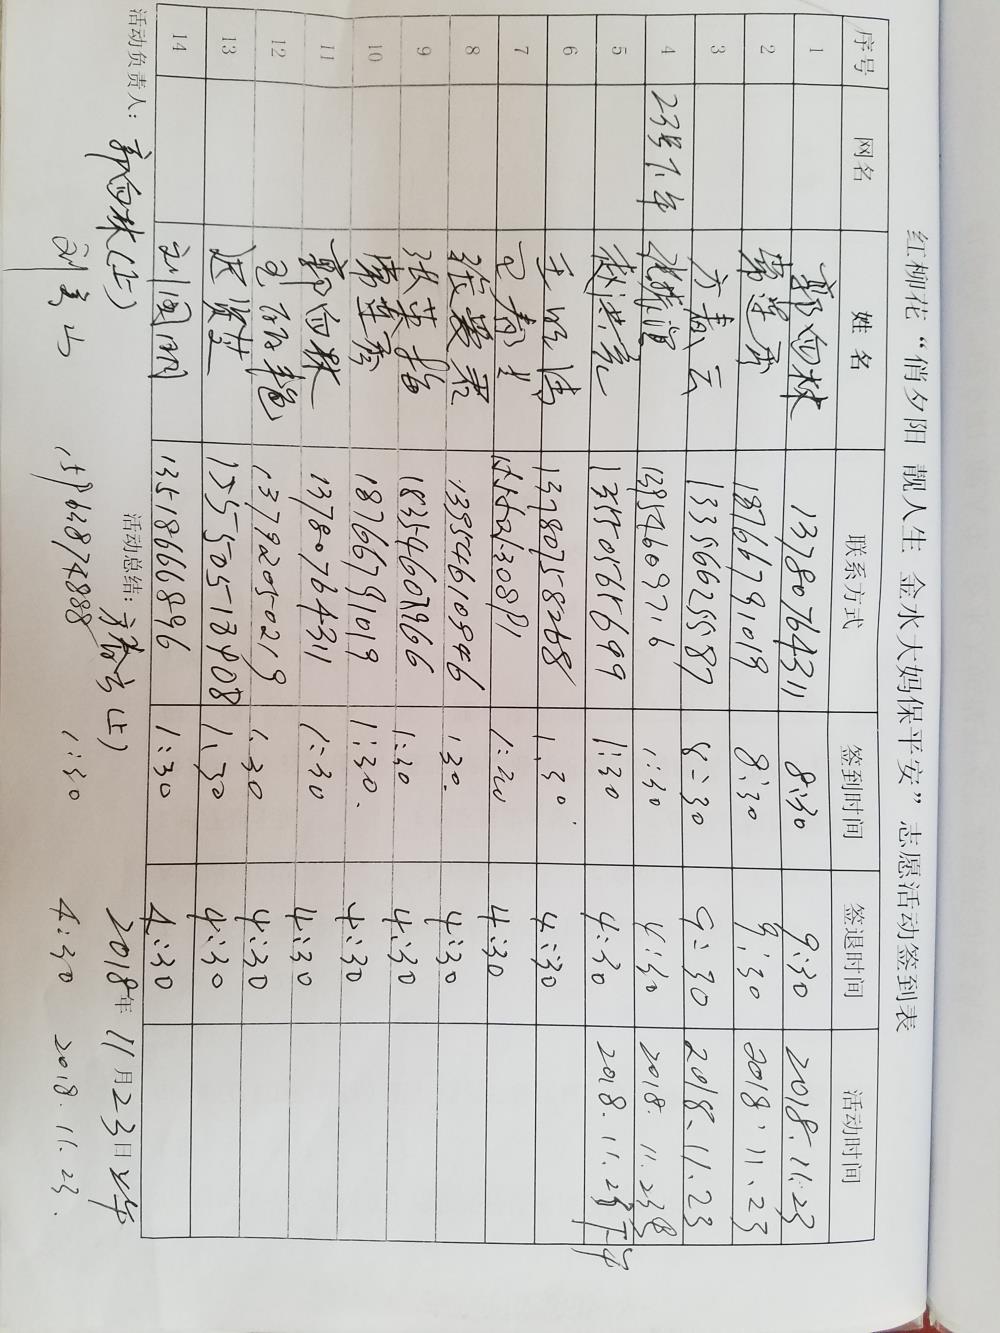 红柳花“俏夕阳 靓人生 金水大妈保平安”志愿活动签到表
序号 网名 姓名 联系方式 签到时间 签退时间 活动时间
1 郭向林 13780764311 8:30 9:30 2018.11.23
2 常莲秀 18766791019 8:30 9:30 2018.11.23
3 方春云 13356625587 8:30 9:30 2018.11.23
4 23号下午 13954609716 1:30 4:30 2018.11.23
5 赵洪亮 1:30 4:30 2018.11.23下午
6 13780758268 1.30. 4:30
7 4:30
8 张爱荣 13954610946 1:30. 4:30
9 张英 18354607966 1:30 4:30
10 常莲秀 18766791019 1:30. 4:30
11 郭向林 13780764311 1:30 4:30
12 13792050219 1.30 4:30
13 15550513408 1.30 4:30
14 刘国明 13518666896 1:30 4:30
活动负责人：郭向林(上) 活动总结：方春云(上) 2018年11月23日上午
1:30 4:30 2018.11.23.